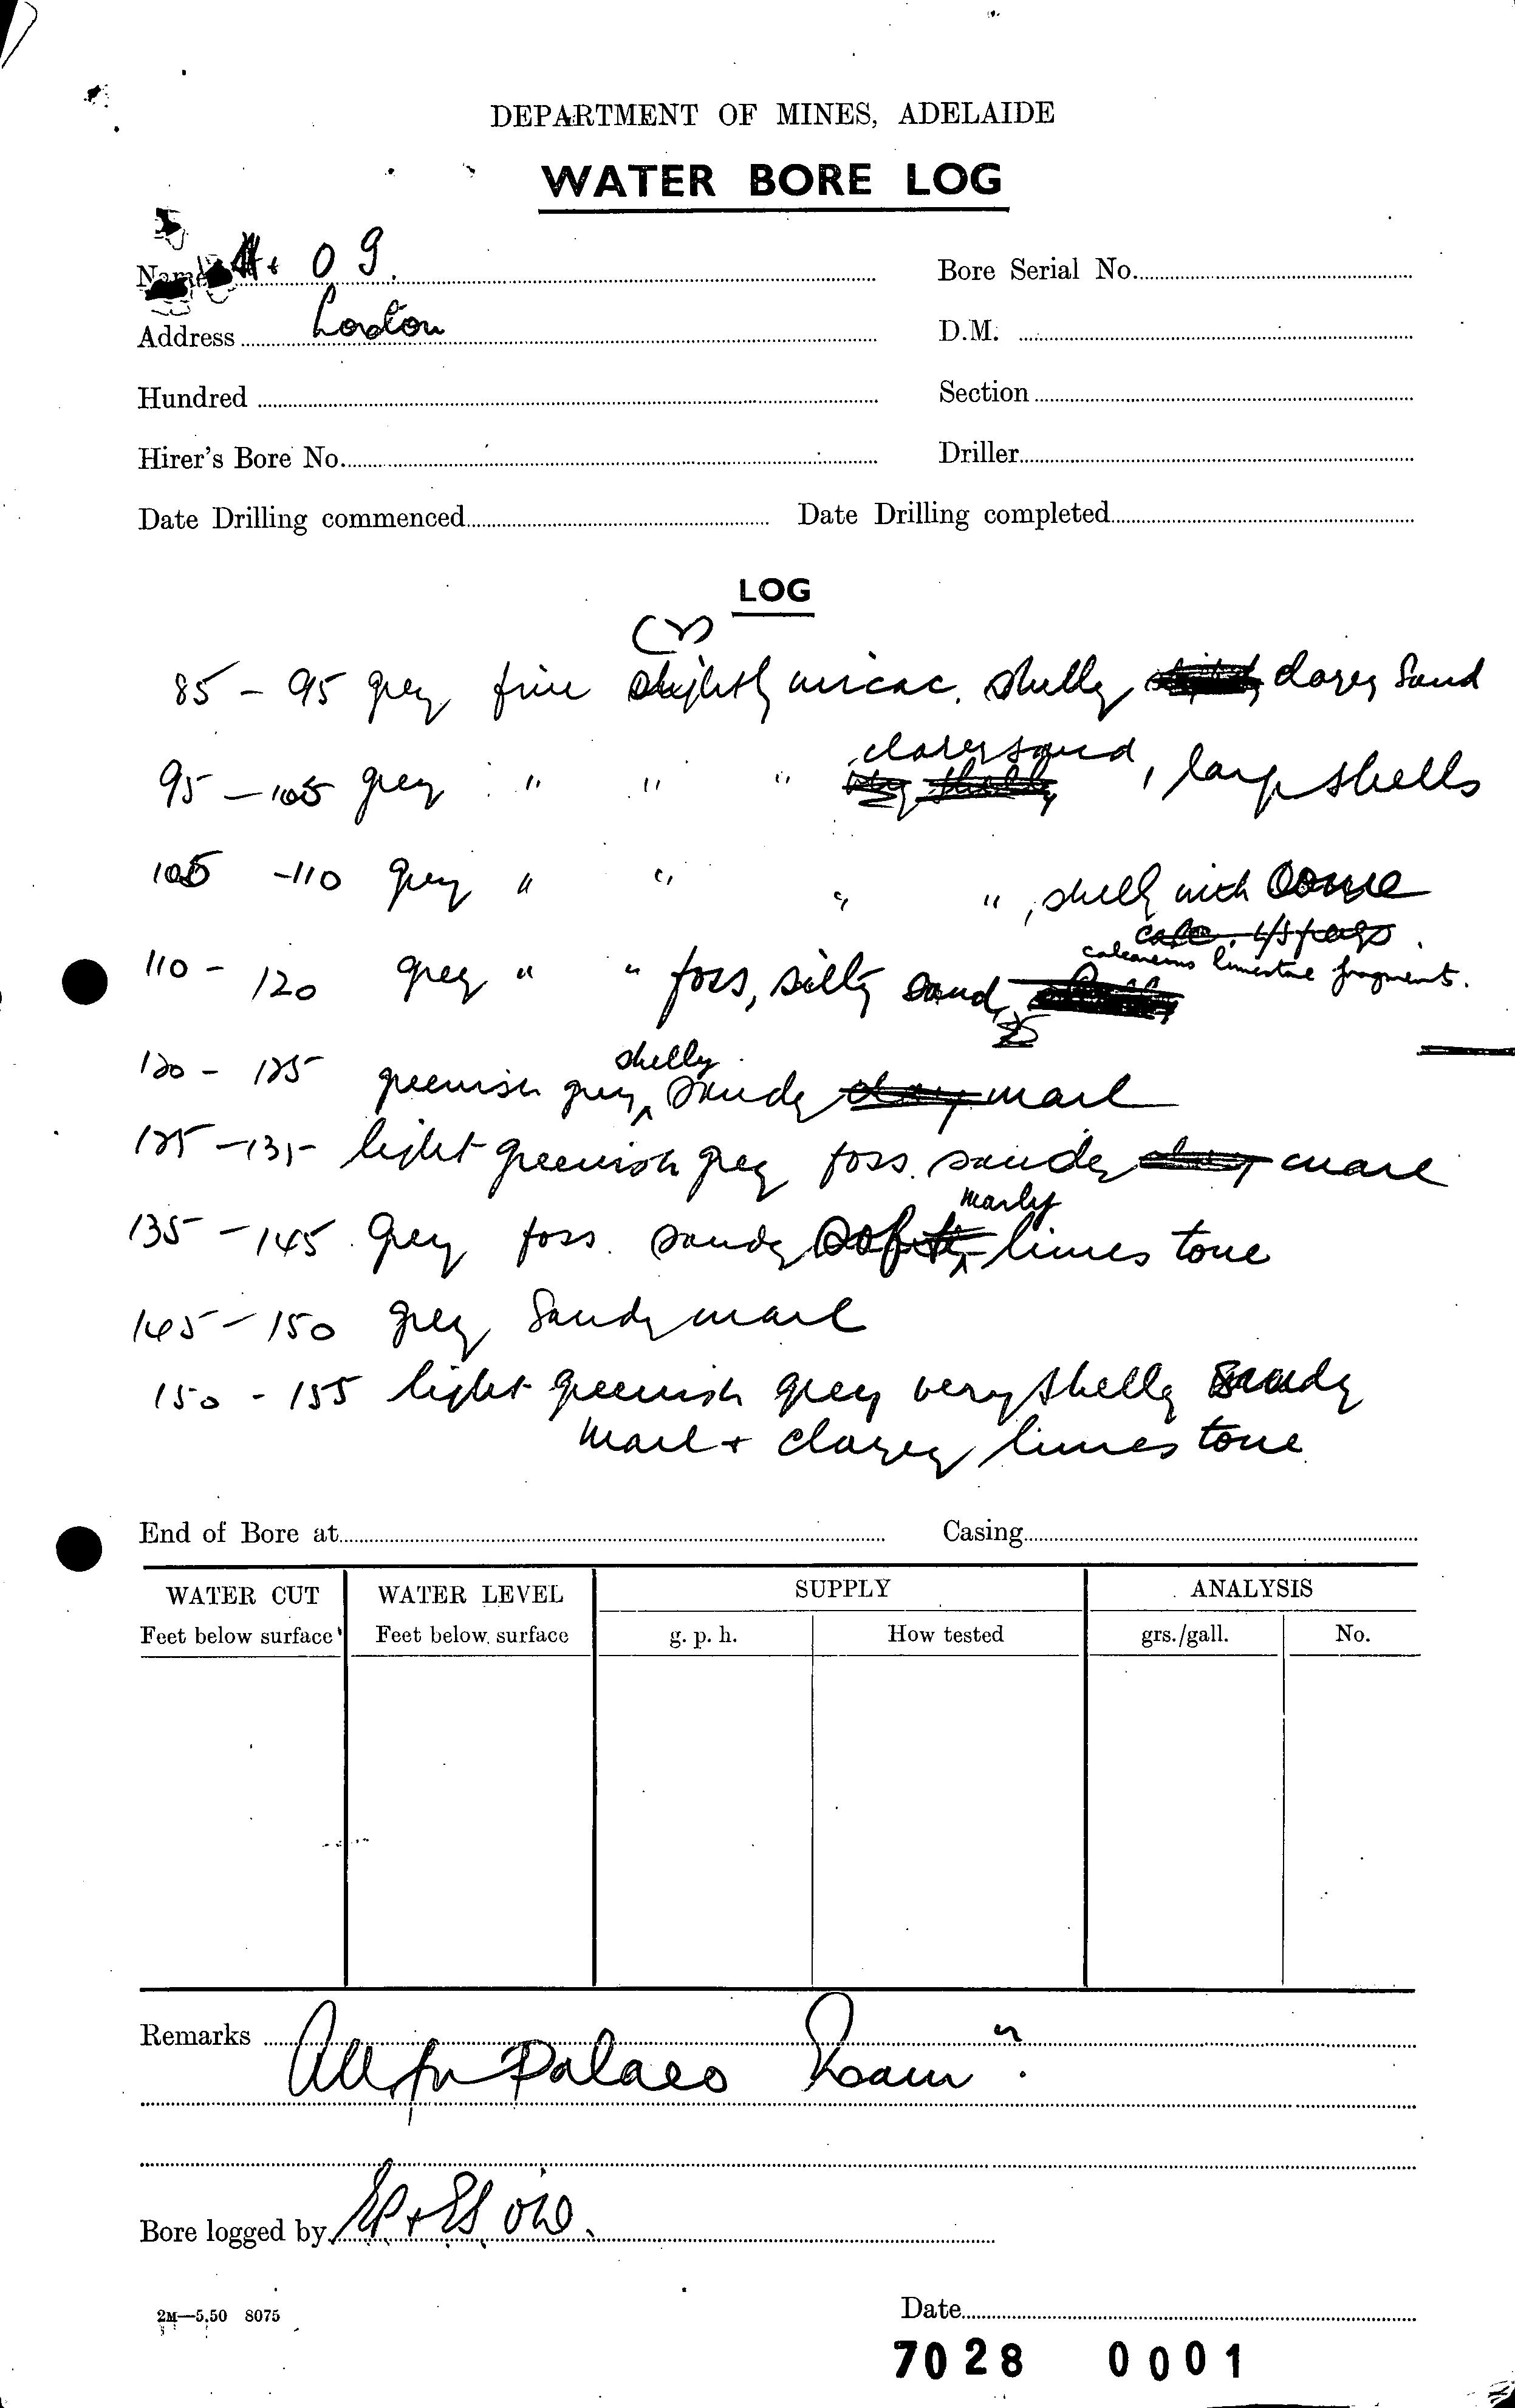 DEPARTMENT OF MINES, ADELAIDE
WATER BORE LOG
Name 09. Bore Serial No.
Address Loxton D.M.
Hundred Section
Hirer's Bore No. Driller
Date Drilling commenced Date Drilling completed
LOG
85 - 95 grey fine slightly micac. shelly clayey sand
95 - 105 grey " " " clayey sand, large shells
105 - 110 grey " " " ", shelly with some
calc. l/s frags
calcareous limestone fragments.
110 - 120 grey " " foss, silty sand,
shelly
120 - 125 greenish grey sandy clay marl
125 - 135 light greenish grey foss. sandy clay marl
marly
135 - 145 grey foss. sandy limestone
145 - 150 grey sandy marl
150 - 155 light greenish grey very shelly sandy
marl + clayey limestone
End of Bore at Casing
WATER CUT WATER LEVEL SUPPLY ANALYSIS
Feet below surface Feet below surface g. p. h. How tested grs./gall. No.
Remarks All for Palaeo Exam.
Bore logged by
2M—5.50 8075
Date
7028 0001